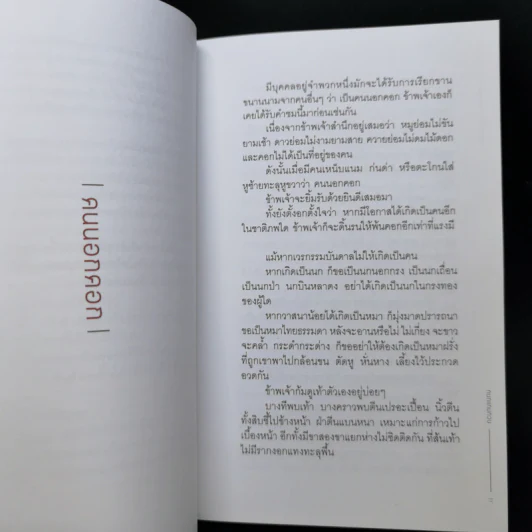 | คนนอกคอก |
มีบุคคลอยู่จำพวกหนึ่งมักจะได้รับการเรียกขาน
ขนานนามจากคนอื่นๆ ว่า เป็นคนนอกคอก ข้าพเจ้าเองก็
เคยได้รับคำชมนี้มาก่อนเช่นกัน
เนื่องจากข้าพเจ้าสำนึกอยู่เสมอว่า หมูย่อมไม่ขัน
ยามเช้า ดาวย่อมไม่งามยามสาย ควายย่อมไม่ดมไม้ดอก
และคอกไม่ได้เป็นที่อยู่ของคน
ดังนั้นเมื่อมีคนเหน็บแนม ก่นด่า หรือตะโกนใส่
หูซ้ายทะลุหูขวาว่า คนนอกคอก
ข้าพเจ้าจะยิ้มรับด้วยยินดีเสมอมา
ทั้งยังตั้งอกตั้งใจว่า หากมีโอกาสได้เกิดเป็นคนอีก
ในชาติภพใด ข้าพเจ้าก็จะดิ้นรนให้พ้นคอกอีกเท่าที่แรงมี
แม้หากเวรกรรมบันดาลไม่ให้เกิดเป็นคน
หากเกิดเป็นนก ก็ขอเป็นนกนอกกรง เป็นนกเถื่อน
เป็นนกป่า นกบินหลาดง อย่าได้เกิดเป็นนกในกรงทอง
ของผู้ใด
หากวาสนาน้อยได้เกิดเป็นหมา ก็มุ่งมาดปรารถนา
ขอเป็นหมาไทยธรรมดา หลังจะอานหรือไม่ ไม่เกี่ยง จะขาว
จะคล้ำ กระดำกระด่าง ก็ขออย่าให้ต้องเกิดเป็นหมาฝรั่ง
ที่ถูกเขาพาไปกล้อนขน ตัดหู หั่นหาง เลี้ยงไว้ประกวด
อวดกัน
ข้าพเจ้าก้มดูเท้าตัวเองอยู่บ่อยๆ
บางทีพบเท้า บางคราวพบตีนเปรอะเปื้อน นิ้วตีน
ทั้งสิบชี้ไปข้างหน้า ฝ่าตีนแบนหนา เหมาะแก่การก้าวไป
เบื้องหน้า อีกทั้งมีขาสองขาแยกห่างไม่ชิดติดกัน ที่ส้นเท้า
ไม่มีรากงอกแทงทะลุพื้น